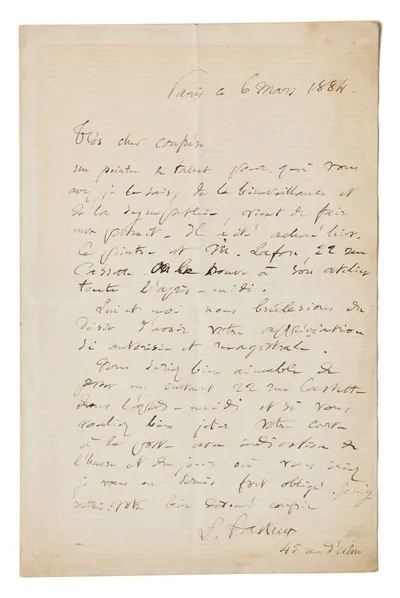 Paris ce 6 Mars 1884.
Très cher confrère
un peintre de talent pour qui vous
avez, je le sais, de la bienveillance et
de la sympathie, vient de faire
mon portrait. Il a été achevé hier.
Ce peintre est M. Lafon 22 rue
Cassette. On le trouve à son atelier
toute l'après-midi.
Lui et moi nous brûlerions du
désir d'avoir votre appréciation
si autorisée et magistrale.
Vous seriez bien aimable de
passer un instant 22 rue Cassette
dans l'après-midi et si vous
vouliez bien jeter votre carte
à la poste avec indication de
l'heure et du jour où vous iriez
je vous en serais fort obligé.
votre bien dévoué confrère
L. Pasteur
45 rue d'Ulm